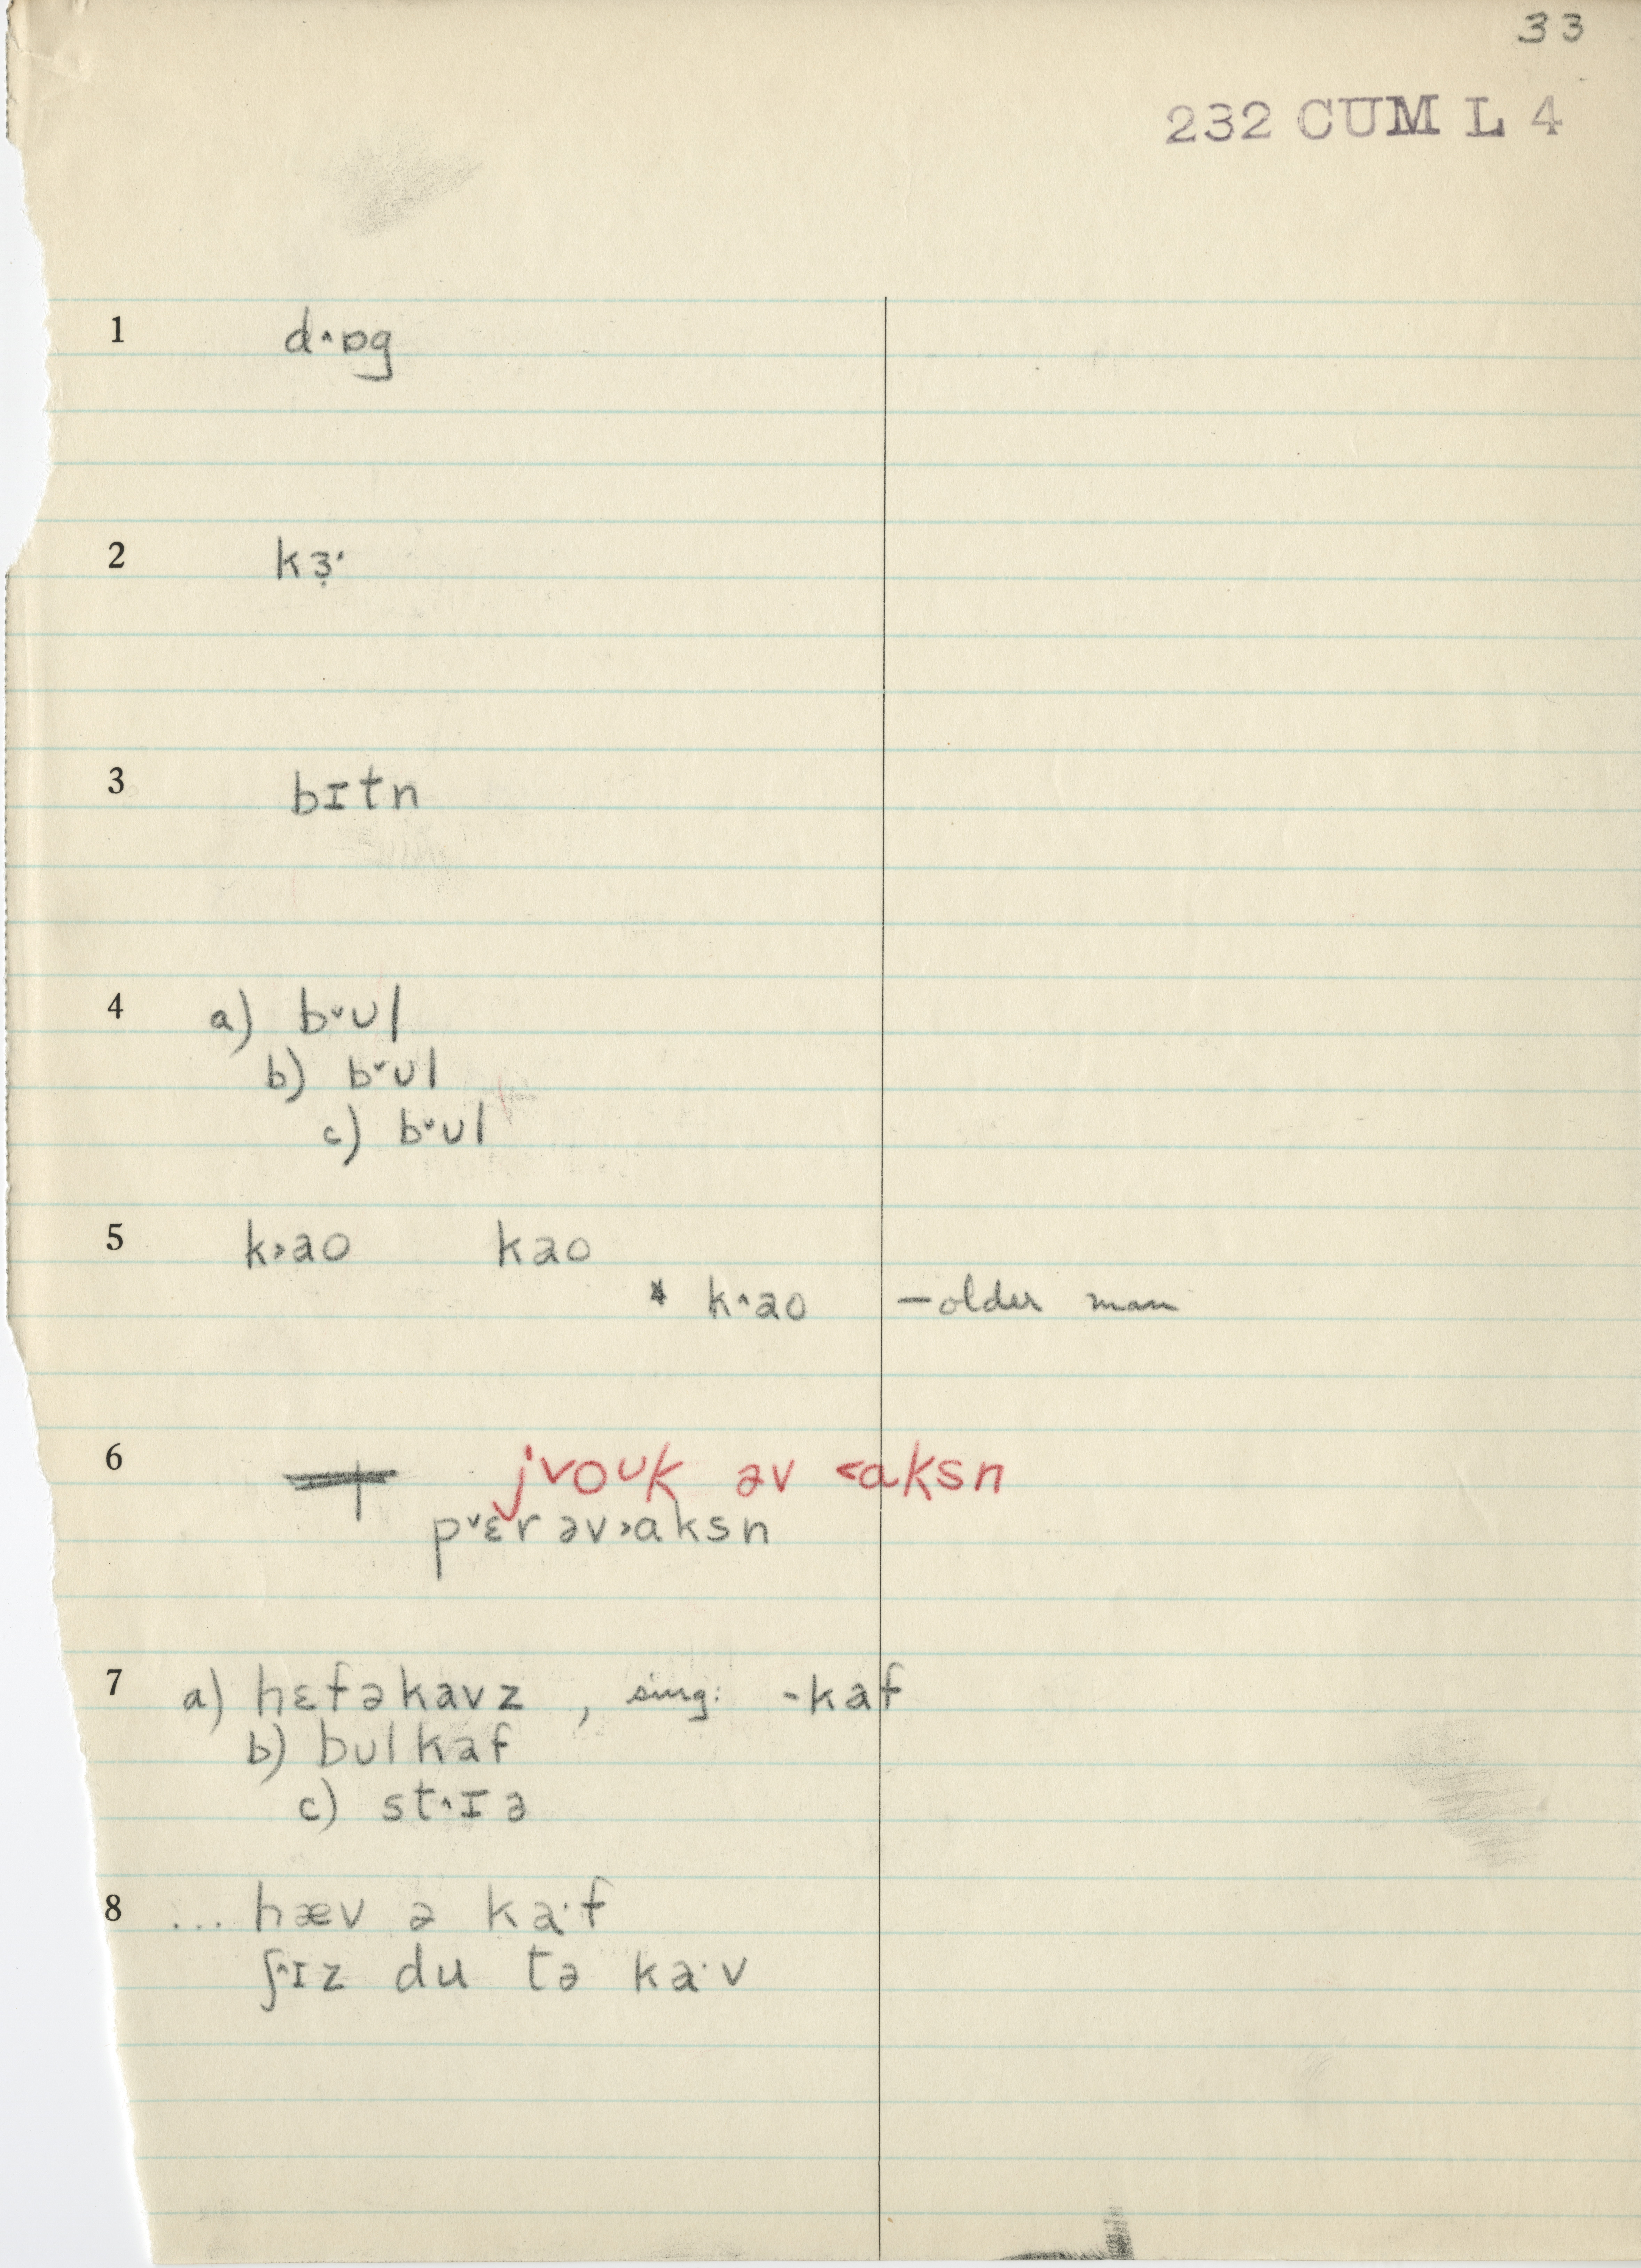 33
232 CUM L 4
1 d^ɒg
2 kɜ̣·
3 bɪtn
4 a) bᵛul
b) bᵛul
c) bᵛul
5 k>ao kao
* k^ao – older man
6 jᵛoᴜk əv <aksn
pᵛɛr əv>aksn
7 a) hɛfəkavz , sing: -kaf
b) bulkaf
c) st^ɪə
8 ... hæv ə ka·f
ʃ^ɪz du tə ka·v